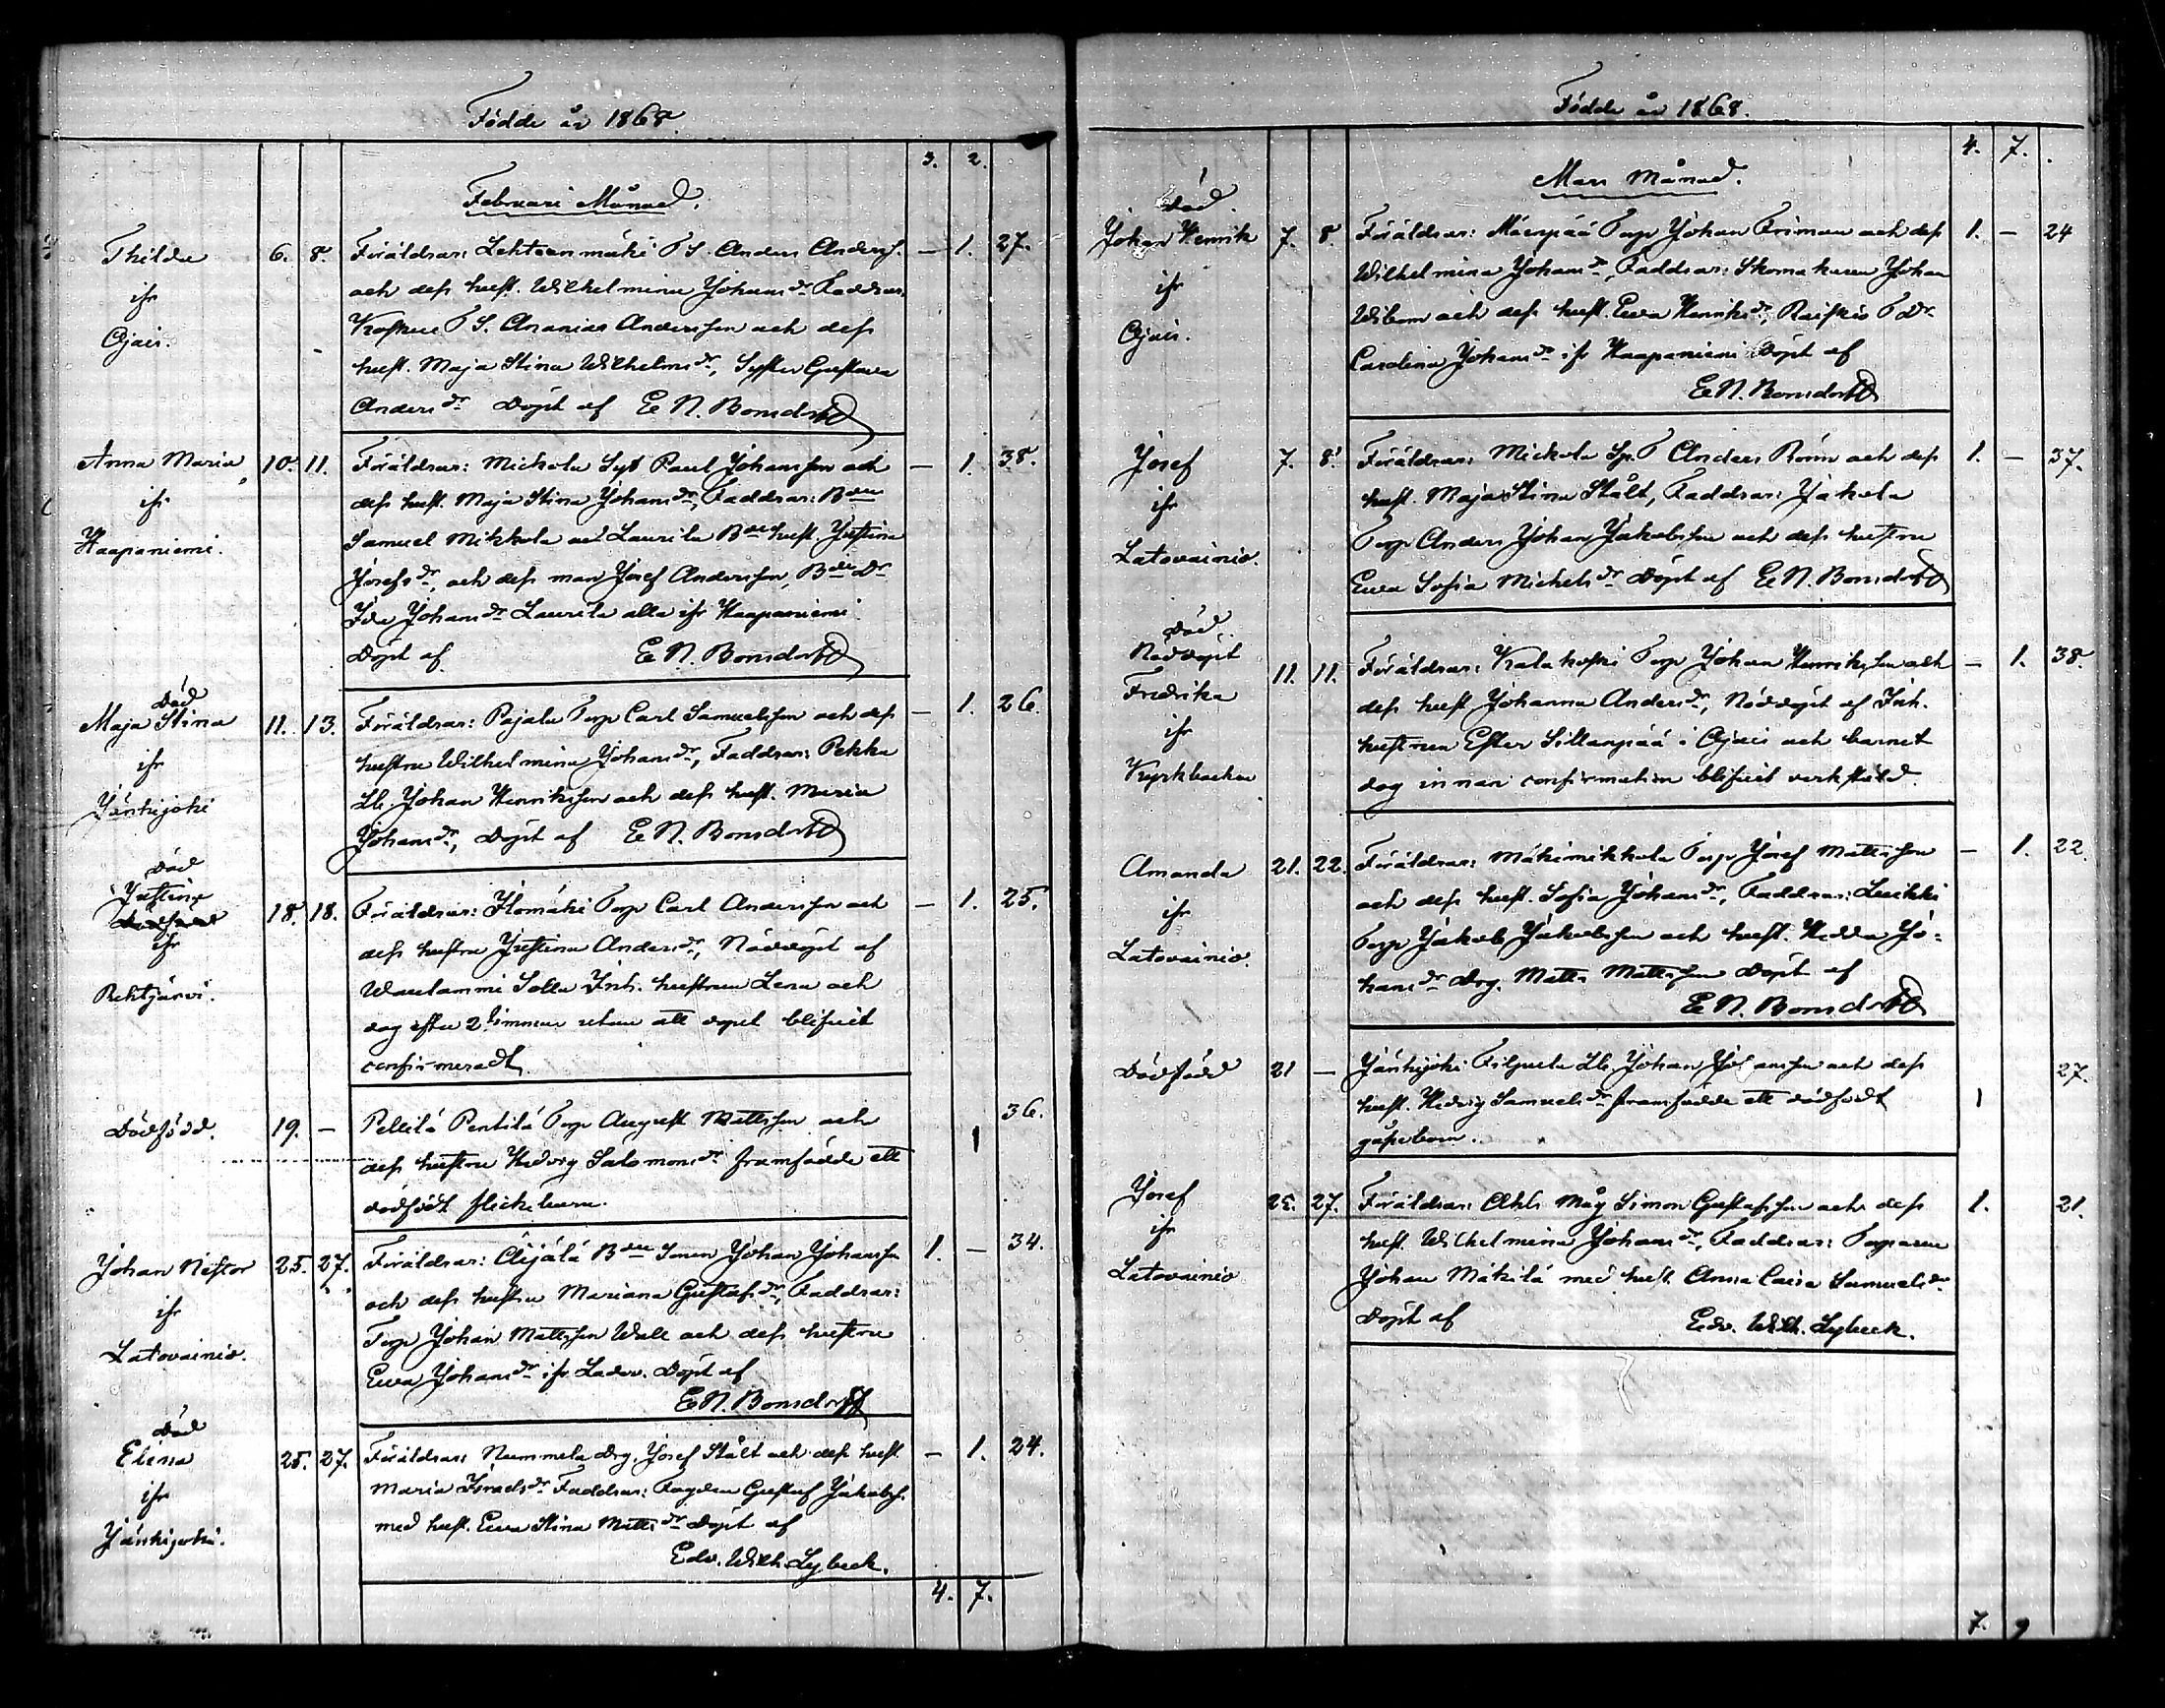 Födde år 1868.
3. 2.
Februari Månad.
Thilda 6. 8. Föräldrar: Lehteenmäki T S. Anders Anderss. — 1. 27.
ifr och dess hust. Wilhelmina Johansdr Faddrar:
Ojais. Koskue T S. Ananias Andersson och dess
hust. Maja Stina Wilhelmsdr, Syster Gustava
Andersdr Döpt af E N. Bonsdorff
Anna Maria 10. 11. Föräldrar: Mickola Syt Paul Johansson och — 1. 38.
ifr dess hust. Maja Stina Johansdr, Faddrar: Bden
Haapaniemi. Samuel Mikkola och Laurila Bde hust. Justina
Josefsdr, och dess man Josef Andersson, Bde Dr
Ida Johansdr Laurila alla ifr Haapaniemi
Döpt af E N. Bonsdorff
Död
Maja Stina 11. 13. Föräldrar: Pajala Torp Carl Samuelsson och dess — 1. 26.
ifr hustru Wilhelmina Johansdr, Faddrar: Pekka
Jänhijoki Lb. Johan Henriksson och dess hust. Maria
Johansdr, Döpt af E N. Bonsdorff
Död
Justina 18. 18. Föräldrar: Ilomäki Torp Carl Andersson och — 1. 25.
ifr dess hustru Justina Andersdr, Nöddöpt af
Rehtjärvi. Waulammi Solla Inh. hustrun Lena och
dog efter 2 timmar utan att dopet blifvit
confirmeradt
Dödfödd. 19. — Pellilä Pentilä Torp August Mattsson och 1 36.
dess hustru Hedvig Salomonsdr framfödde ett
dödfödt flickebarn.
Johan Nestor 25. 27. Föräldrar: Äijälä Bden Sonen Johan Johansson 1. — 34.
ifr och dess hustru Mariana Gustafsdr, Faddrar:
Latovainio. Torp Johan Mattsson Wall och dess hustru
Ewa Johansdr ifr Ladov. Döpt af
E N. Bonsdorff
Död
Elina 25. 27. Föräldrar: Nummela Drg. Josef Stålt och dess hust. — 1. 24.
ifr Maria Israelsdr Faddrar: Fogden Gustaf Jakobss.
Jänhijoki. med hust. Ewa Stina Mattsdr Döpt af
Edv. Wilh. Lybeck.
4. 7.
Födde år 1868.
4. 7.
Mars Månad.
Död.
Johan Henrik 7. 8. Föräldrar: Mäenpää Torp Johan Friman och dess 1. — 24
ifr Wilhelmina Johansdr, Faddrar: Skomakaren Johan
Ojais. Wibom och dess hust. Ewa Henriksdr, Raiskio T Dr.
Carolina Johansdr ifr Haapaniemi Döpt af
E N. Bonsdorff
Josef 7. 8. Föräldrar: Mickola Sp. T Anders Rönn och dess 1. — 37.
ifr hust. Maja Stina Stålt, Faddrar: Jakola
Latovainio. Torp Anders Johan Jakobsson och dess hustru
Ewa Sofia Michelsdr Döpt af E N. Bonsdorff
Död.
Nöddöpt
Fredrika 11. 11. Föräldrar: Kalakoski Torp Johan Henriksson och — 1. 38.
ifr dess hust Johanna Andersdr, Nöddöpt af Inh.
Kyrkbacka hustrun Ester Sillanpää i Ojais och barnet
dog innan confirmation blifvit verkstäld.
Amanda 21. 22. Föräldrar: Mäkimikkola Torp Josef Mattsson — 1. 22.
ifr och dess hust. Sofia Johansdr, Faddrar: Luikki
Latovainio. Torp Jakob Jakobsson och hust. Hedda Jo-
hansdr Drg. Matts Mattsson Döpt af
E N. Bonsdorff
Dödfödd 21 — Jänhijoki Filpula Lb. Johan Johansson och dess 27.
hust. Hedvig Samuelsdr framfödde ett dödfödt 1
gossebarn.
Josef 25. 27. Föräldrar: Ahls Måg Simon Gustafsson och dess 1. 21.
ifr hust. Wilhelmina Johansdr, Faddrar: Torparen
Latovainio Johan Mäkilä med hust. Anna Caisa Samuelsdr
Döpt af Edv. Wilh. Lybeck.
7. 9